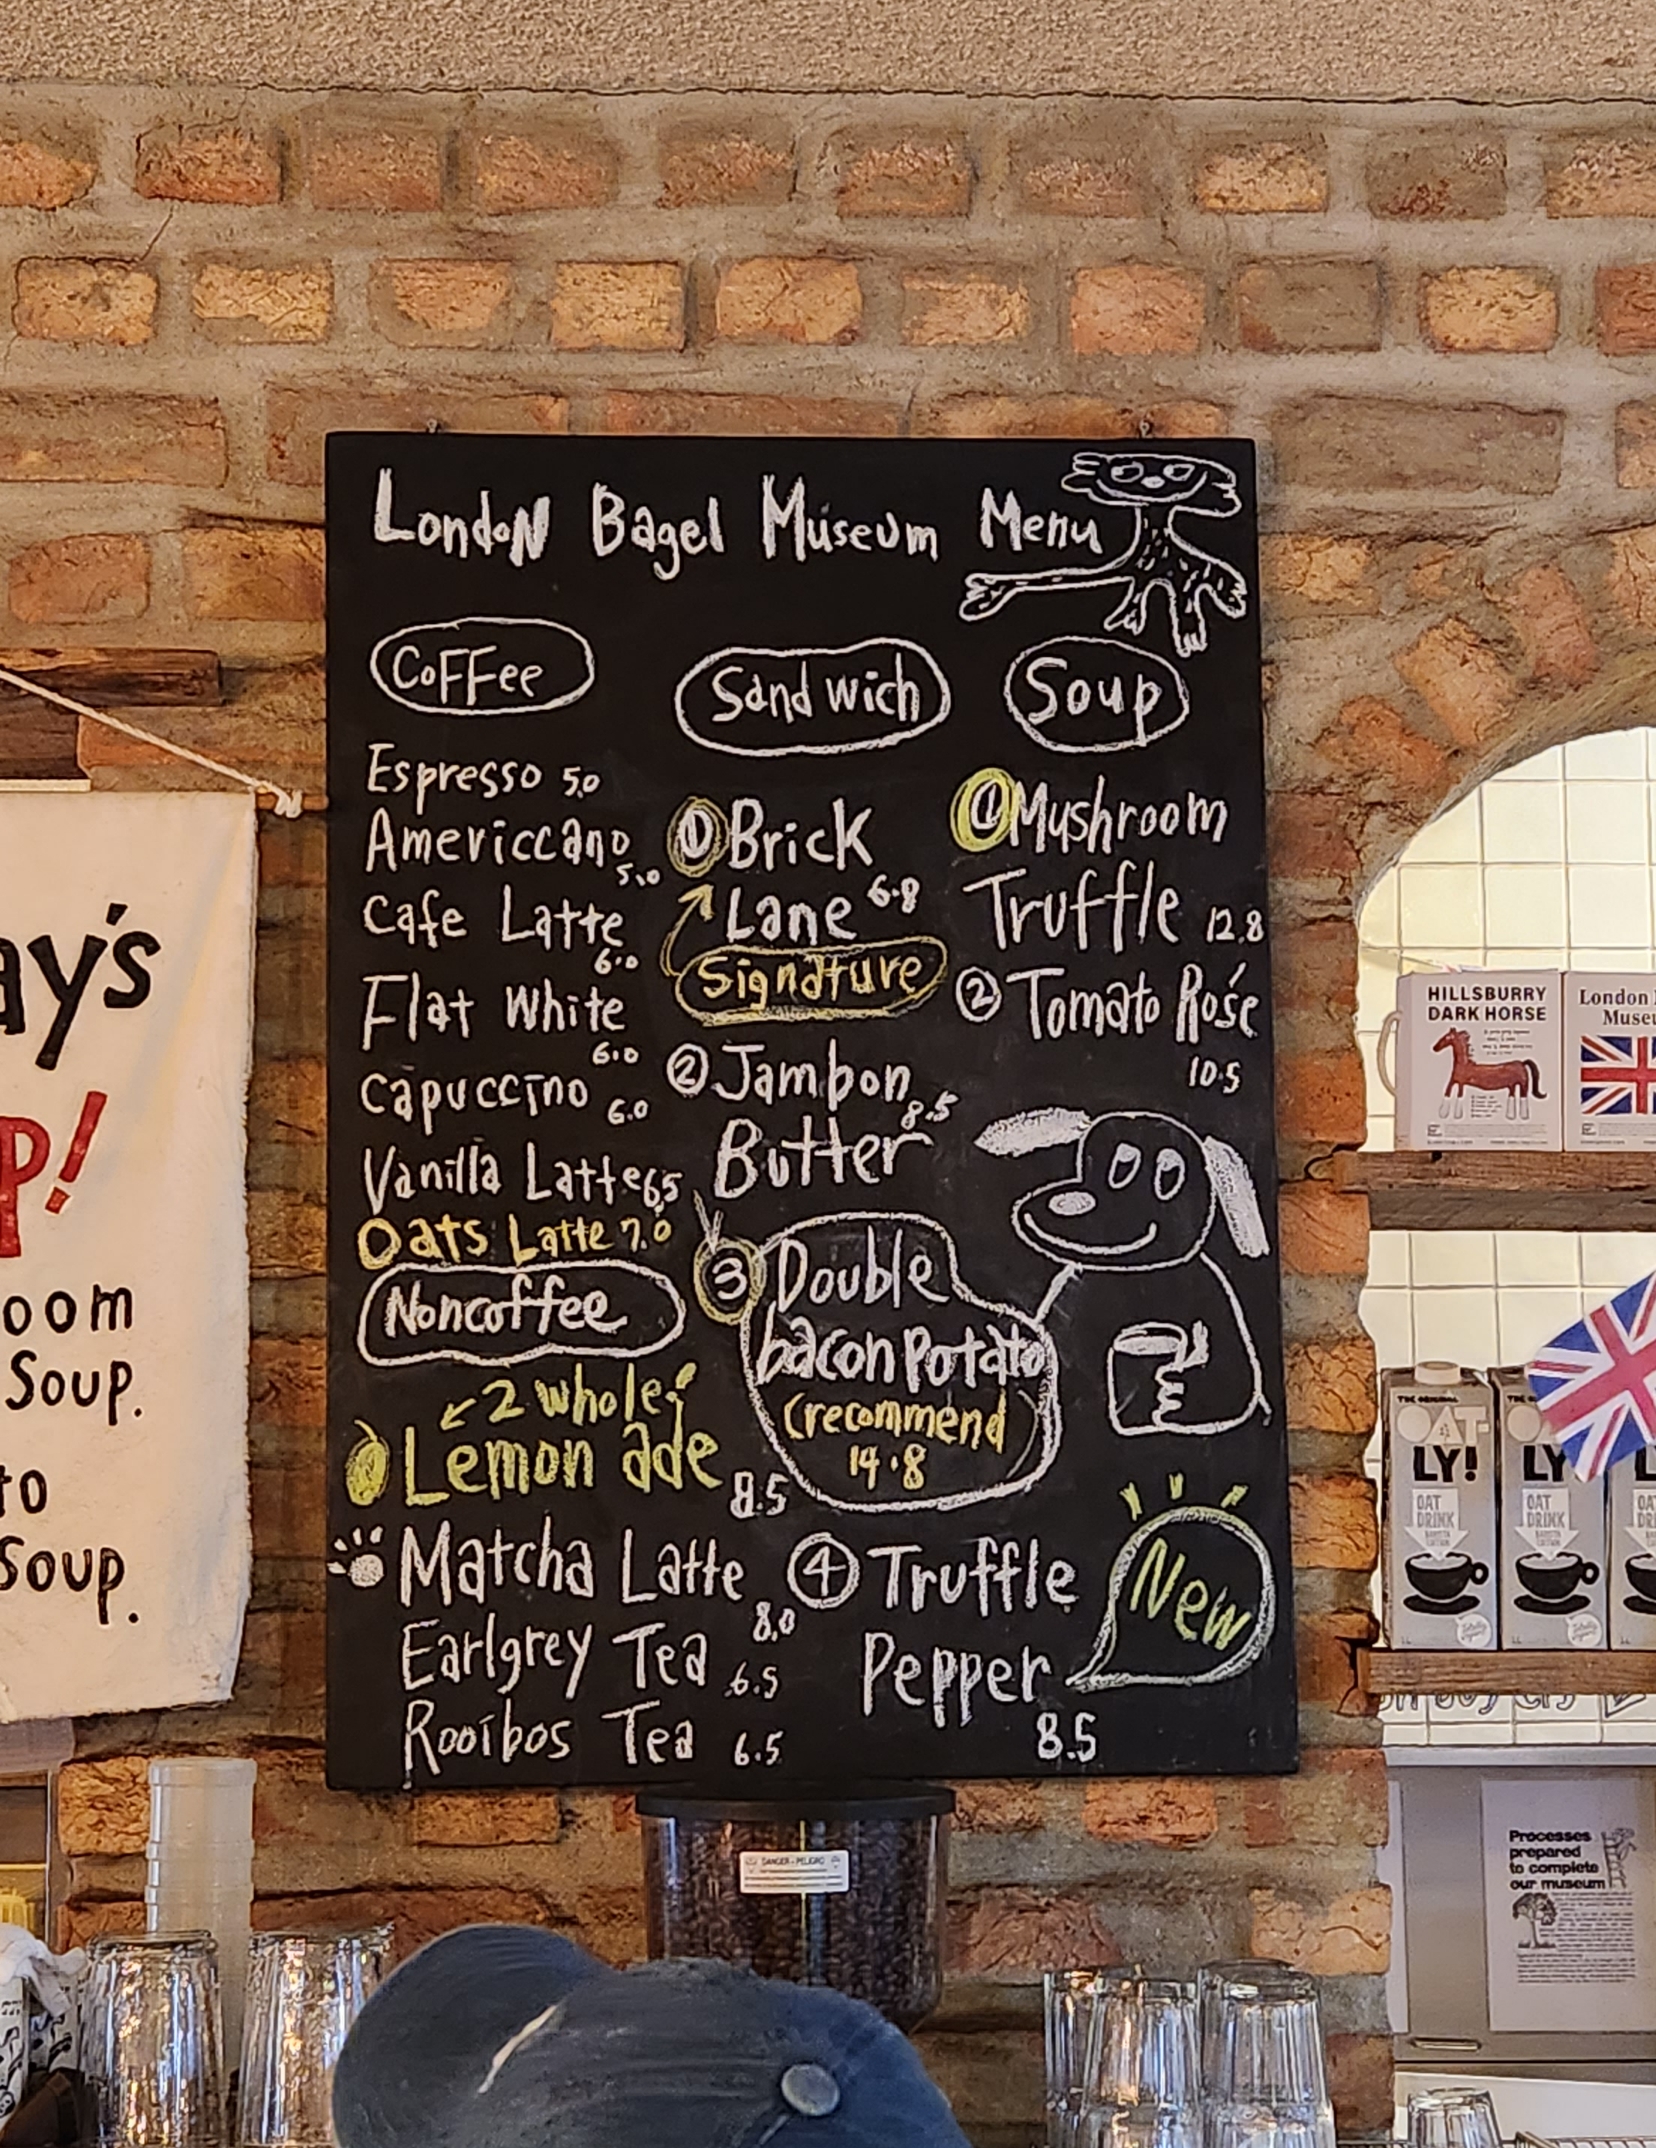 London Bagel Museum Menu
Coffee
Espresso 5.0
Americcano 5.0
Cafe Latte 6.0
Flat White 6.0
Capuccino 6.0
Vanilla Latte 6.5
Oats Latte 7.0
Noncoffee
2 whole
Lemon ade 8.5
Matcha Latte 8.0
Earlgrey Tea 6.5
Rooibos Tea 6.5
Sandwich
① Brick
Lane 6.8
Signature
② Jambon 8.5
Butter
③ Double
bacon Potato
(recommend
14.8
④ Truffle
Pepper
8.5
New
Soup
① Mushroom
Truffle 12.8
② Tomato Rosé
10.5
ay's
p!
oom
Soup.
to
Soup.
HILLSBURRY
DARK HORSE
London
Museu
THE ORIGINAL
OAT
LY!
OAT
DRINK
BARISTA
EDITION
LY
OAT
DRINK
DANGER - PELIGRO
Processes
prepared
to complete
our museum